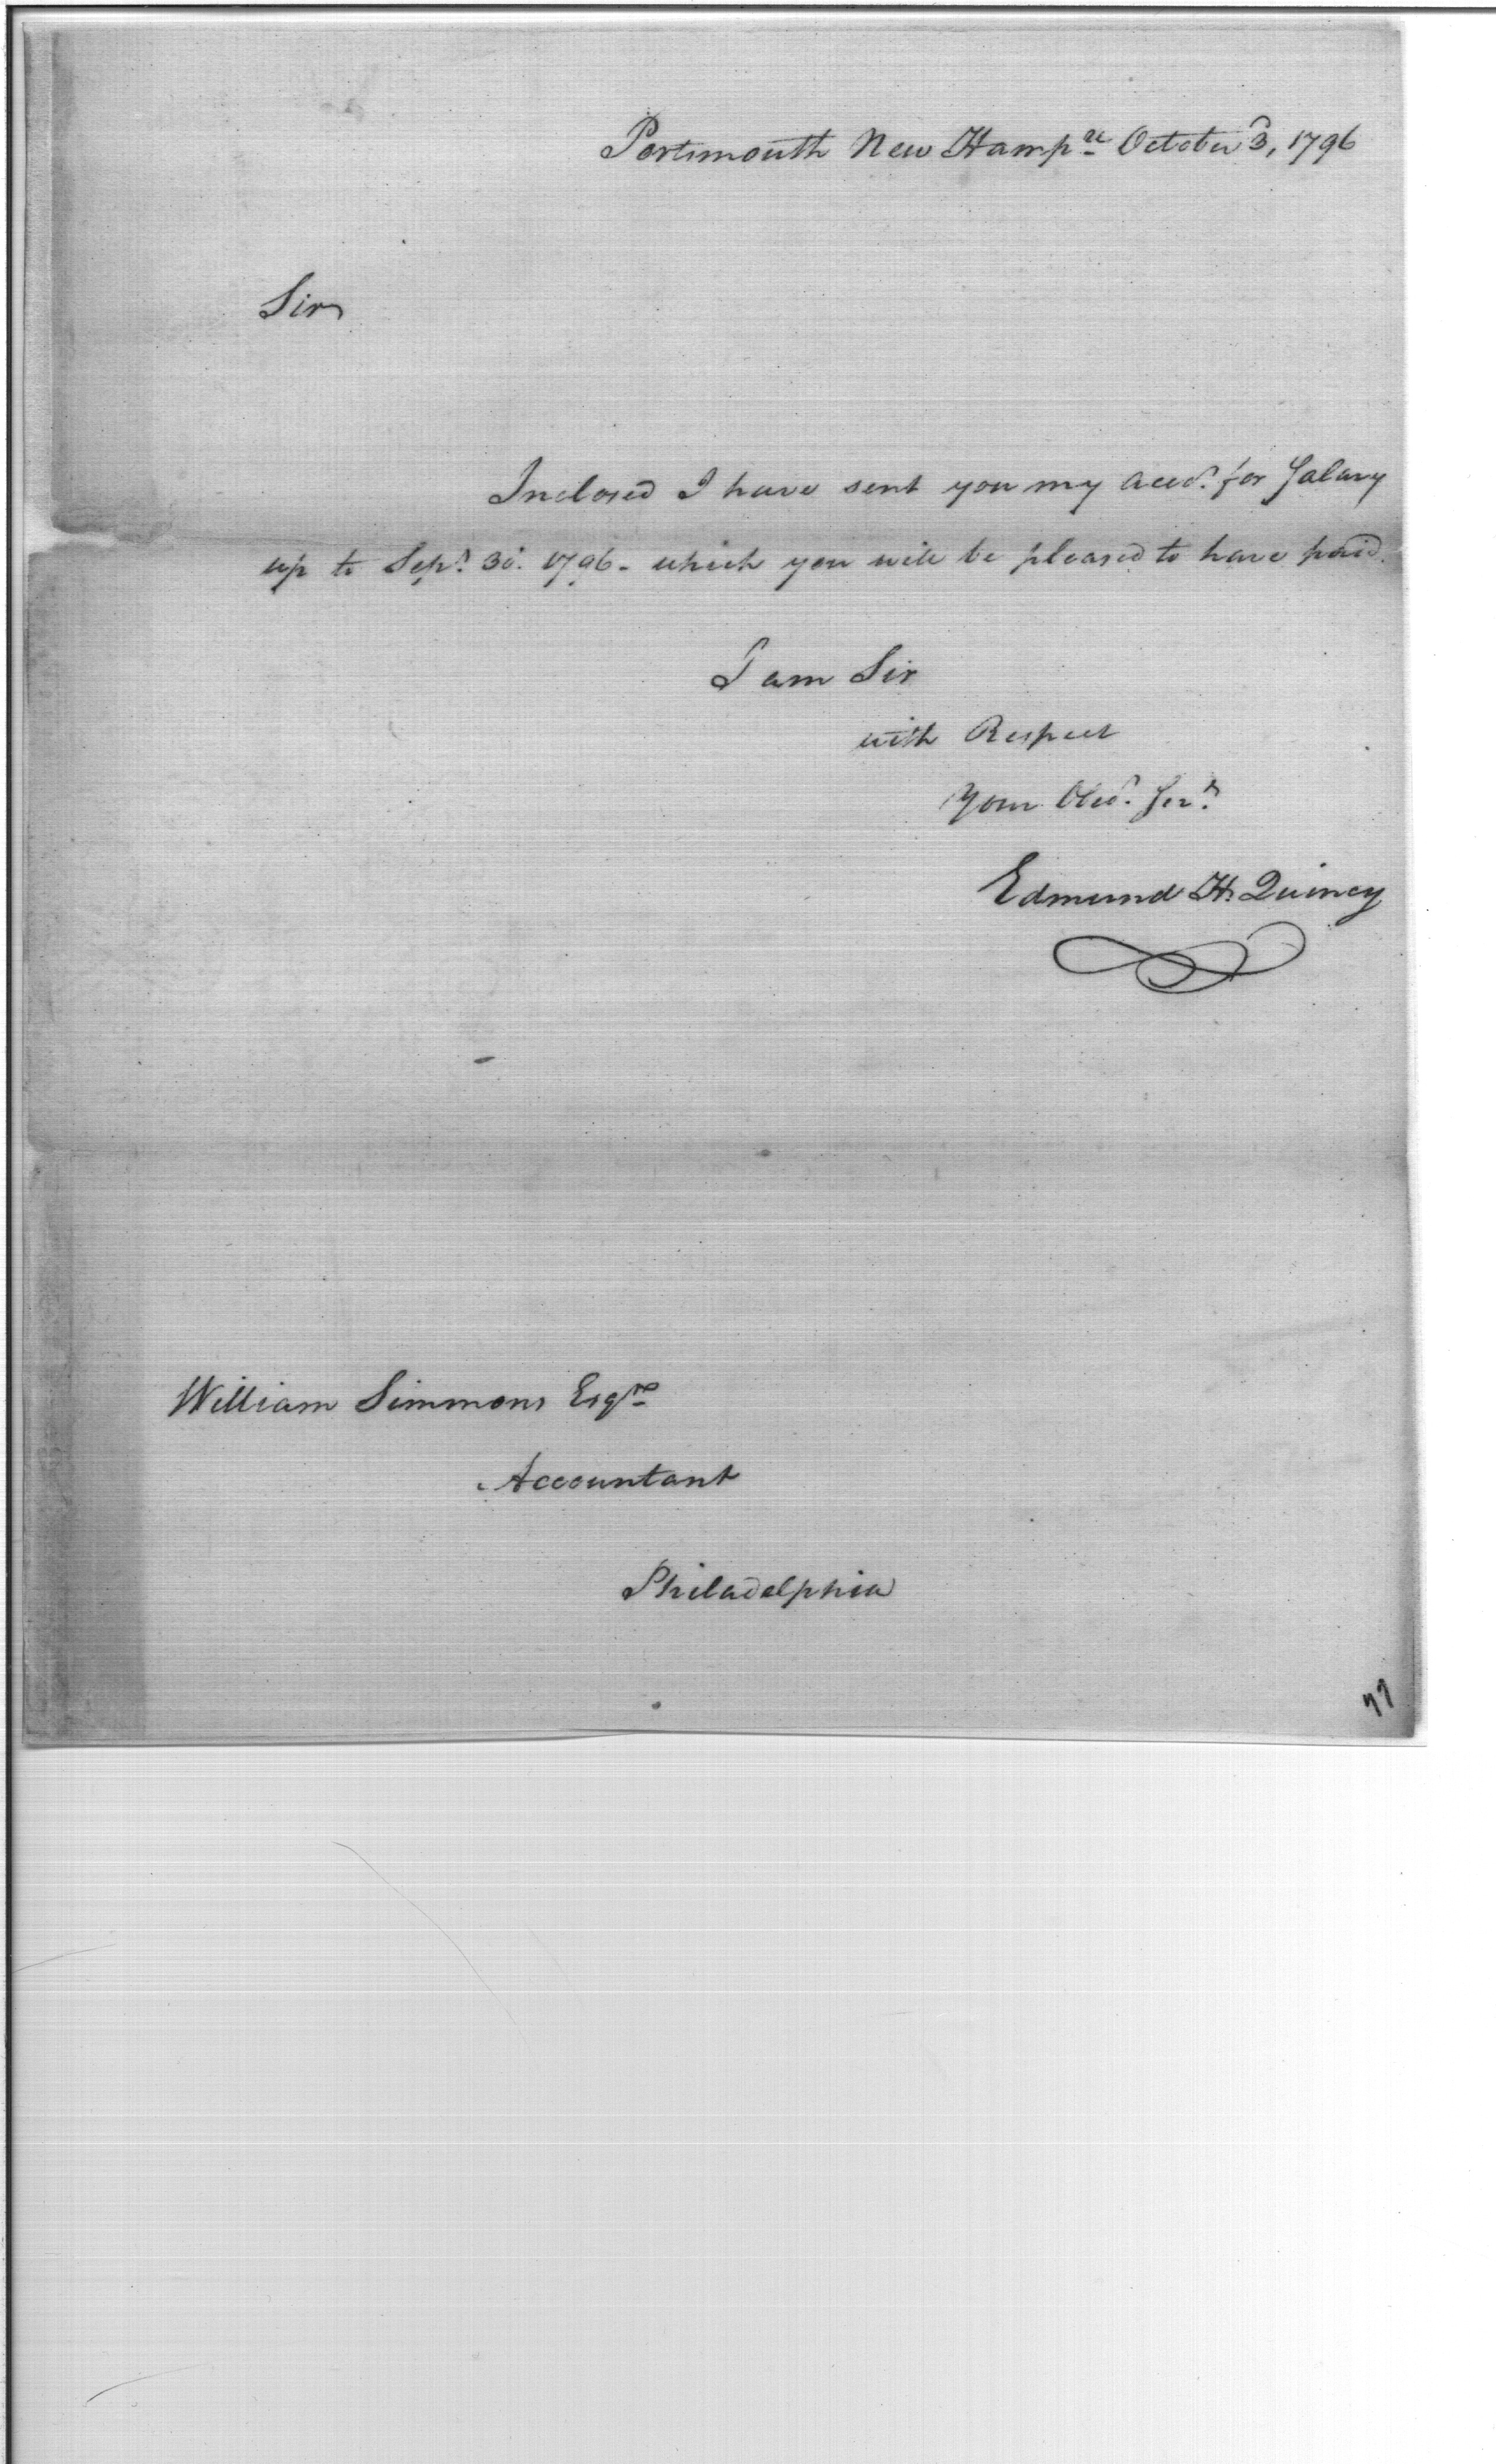 Portsmouth New Hampre October 3, 1796
Sir
Inclosed I have sent you my Acct. for Salary
up to Sepr. 30. 1796. which you will be pleased to have paid.
I am Sir
with Respect
Your Obed. Sert.
Edmund H. Quincy
William Simmons Esqre
Accountant
Philadelphia